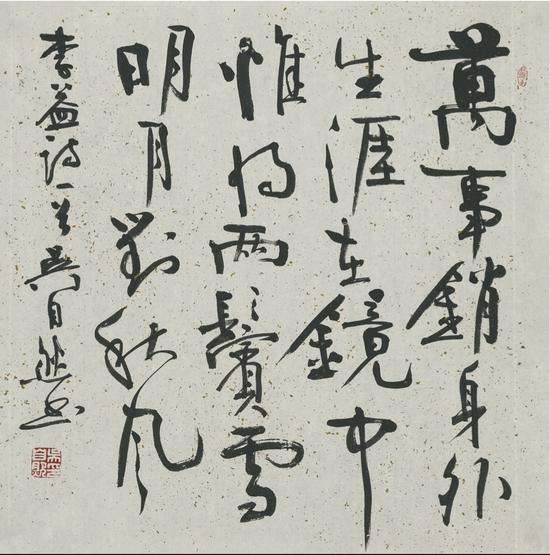 萬事銷身外
生涯在鏡中
惟将两鬢雪
明月對秋风
李益詩一首吴自然书